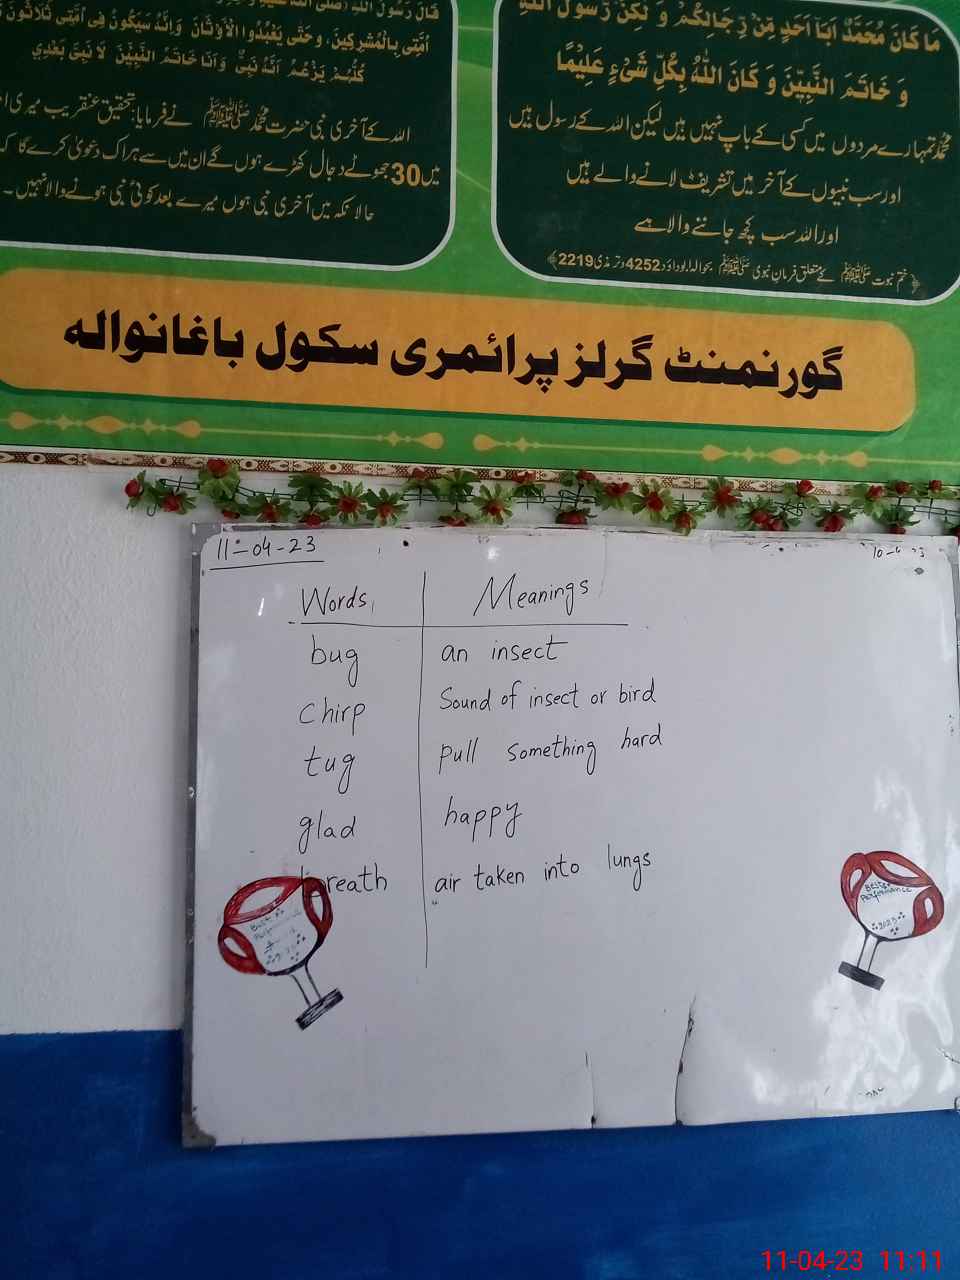 قَالَ رَسُولُ اللّٰهِ
اُمَّتِی بِالْمُشْرِکِینَ، وَحَتّٰی یَعْبُدُوا الْاَوْثَانَ وَاِنَّهُ سَیَکُونُ فِی اُمَّتِی ثَلَاثُونَ
کُلُّهُمْ یَزْعُمُ اَنَّهُ نَبِیٌّ وَاَنَا خَاتَمُ النَّبِیّٖنَ لَا نَبِیَّ بَعْدِی
اللہ کے آخری نبی حضرت محمد ﷺ نے فرمایا: تحقیق عنقریب میری
میں 30 جھوٹے دجال کھڑے ہوں گے ان میں سے ہر اک دعویٰ کرے گا
حالانکہ میں آخری نبی ہوں میرے بعد کوئی نبی ہونے والا نہیں۔
مَا کَانَ مُحَمَّدٌ اَبَآ اَحَدٍ مِّنْ رِّجَالِکُمْ وَ لٰکِنْ رَّسُوْلَ اللّٰهِ
وَ خَاتَمَ النَّبِیّٖنَ وَ کَانَ اللّٰهُ بِکُلِّ شَیْءٍ عَلِیْمًا
محمدؐ تمہارے مردوں میں کسی کے باپ نہیں ہیں لیکن اللہ کے رسول ہیں
اور سب نبیوں کے آخر میں تشریف لانے والے ہیں
اور اللہ سب کچھ جاننے والا ہے
﴿ختم نبوت ﷺ کے متعلق فرمان نبوی ﷺ بحوالہ ابوداؤد 4252 و ترمذی 2219﴾
گورنمنٹ گرلز پرائمری سکول باغانوالہ
11-04-23
Words Meanings
bug an insect
chirp Sound of insect or bird
tug pull something hard
glad happy
breath air taken into lungs
Best Performance
Best Performance
2023
11-04-23 11:11